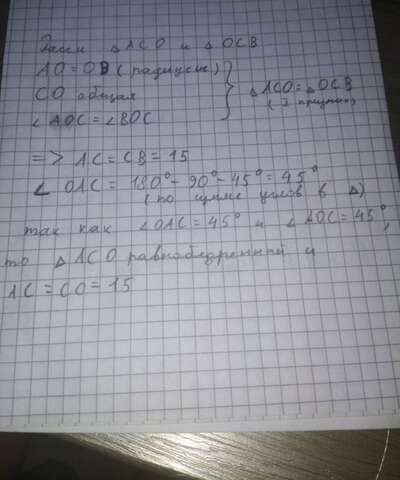 Рассм △ACO и △OCB
AO=OB (радиусы)
CO общая
∠AOC = ∠BOC
△ACO=△OCB
(I признак)
=> AC = CB = 15
∠ OAC = 180°-90°-45°=45°
(по сумме углов в △)
так как ∠OAC=45° и ∠AOC=45°,
то △ACO равнобедренный и
AC = CO = 15